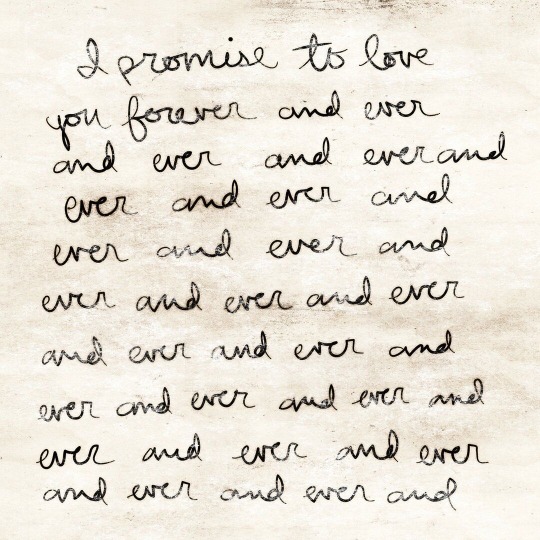 I promise to love
you forever and ever
and ever and ever and
ever and ever and
ever and ever and
ever and ever and ever
and ever and ever and
ever and ever and ever and
ever and ever and ever
and ever and ever and